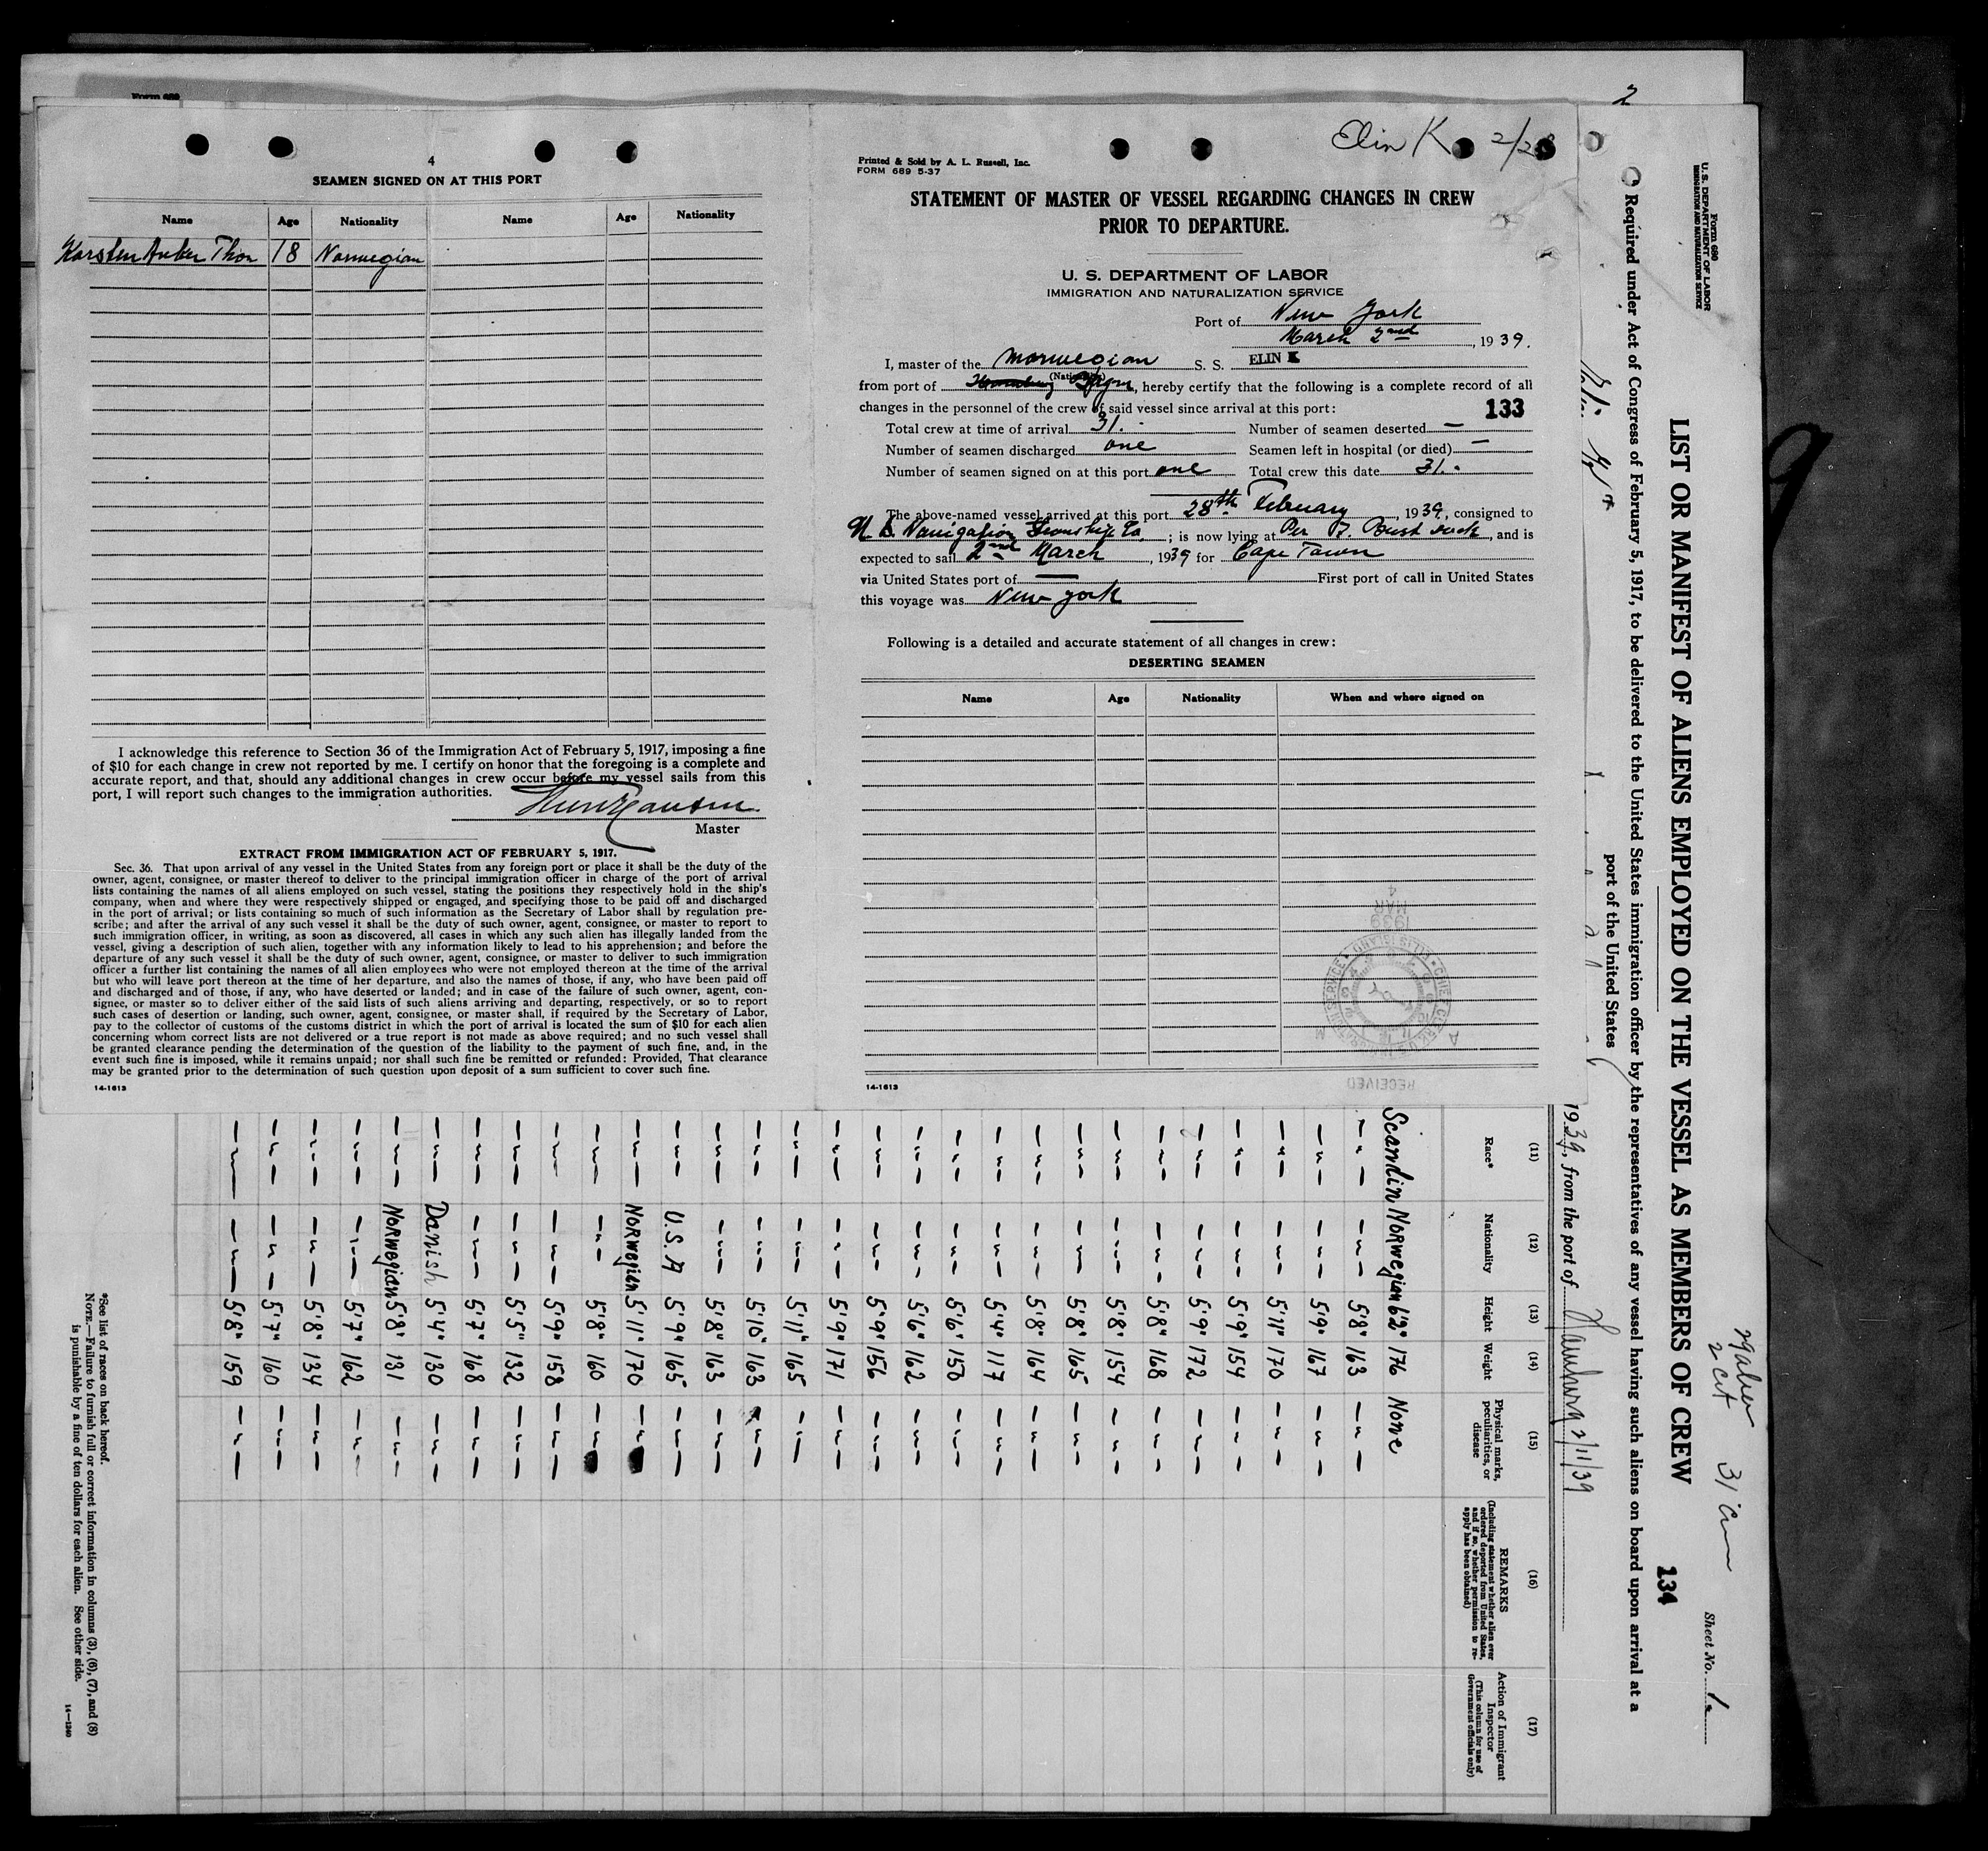 4
SEAMEN SIGNED ON AT THIS PORT
Name Age Nationality Name Age Nationality
Karsten Anker Thon 18 Norwegian
I acknowledge this reference to Section 36 of the Immigration Act of February 5, 1917, imposing a fine
of $10 for each change in crew not reported by me. I certify on honor that the foregoing is a complete and
accurate report, and that, should any additional changes in crew occur before my vessel sails from this
port, I will report such changes to the immigration authorities.
Master
EXTRACT FROM IMMIGRATION ACT OF FEBRUARY 5, 1917.
Sec. 36. That upon arrival of any vessel in the United States from any foreign port or place it shall be the duty of the
owner, agent, consignee, or master thereof to deliver to the principal immigration officer in charge of the port of arrival
lists containing the names of all aliens employed on such vessel, stating the positions they respectively hold in the ship's
company, when and where they were respectively shipped or engaged, and specifying those to be paid off and discharged
in the port of arrival; or lists containing so much of such information as the Secretary of Labor shall by regulation pre-
scribe; and after the arrival of any such vessel it shall be the duty of such owner, agent, consignee, or master to report to
such immigration officer, in writing, as soon as discovered, all cases in which any such alien has illegally landed from the
vessel, giving a description of such alien, together with any information likely to lead to his apprehension; and before the
departure of any such vessel it shall be the duty of such owner, agent, consignee, or master to deliver to such immigration
officer a further list containing the names of all alien employees who were not employed thereon at the time of the arrival
but who will leave port thereon at the time of her departure, and also the names of those, if any, who have been paid off
and discharged and of those, if any, who have deserted or landed; and in case of the failure of such owner, agent, con-
signee, or master so to deliver either of the said lists of such aliens arriving and departing, respectively, or so to report
such cases of desertion or landing, such owner, agent, consignee, or master shall, if required by the Secretary of Labor,
pay to the collector of customs of the customs district in which the port of arrival is located the sum of $10 for each alien
concerning whom correct lists are not delivered or a true report is not made as above required; and no such vessel shall
be granted clearance pending the determination of the question of the liability to the payment of such fine, and, in the
event such fine is imposed, while it remains unpaid; nor shall such fine be remitted or refunded: Provided, That clearance
may be granted prior to the determination of such question upon deposit of a sum sufficient to cover such fine.
14-1613
Elin K 2/28
Printed & Sold by A. L. Russell, Inc.
FORM 689 5-37
STATEMENT OF MASTER OF VESSEL REGARDING CHANGES IN CREW
PRIOR TO DEPARTURE.
U. S. DEPARTMENT OF LABOR
IMMIGRATION AND NATURALIZATION SERVICE
Port of New York
March 2nd, 1939.
I, master of the Norwegian S. S. ELIN K
(Nationality)
from port of , hereby certify that the following is a complete record of all
changes in the personnel of the crew of said vessel since arrival at this port:
133
Total crew at time of arrival 31. Number of seamen deserted —
Number of seamen discharged one Seamen left in hospital (or died) —
Number of seamen signed on at this port one Total crew this date 31.
The above-named vessel arrived at this port 28th February, 1939, consigned to
Navigation Steamship Co, ; is now lying at Pier Bush dock, and is
expected to sail 2nd March, 1939 for Cape Town
via United States port of — First port of call in United States
this voyage was New York
Following is a detailed and accurate statement of all changes in crew:
DESERTING SEAMEN
Name Age Nationality When and where signed on
MAR 4
1939
ELLIS ISLAND
RECEIVED
14-1613
2
Form 680
U. S. DEPARTMENT OF LABOR
IMMIGRATION AND NATURALIZATION SERVICE
Sheet No. 1a
31
LIST OR MANIFEST OF ALIENS EMPLOYED ON THE VESSEL AS MEMBERS OF CREW
134
Required under Act of Congress of February 5, 1917, to be delivered to the United States immigration officer by the representatives of any vessel having such aliens on board upon arrival at a
port of the United States
1939, from the port of Hamburg 2/11/39
(11) (12) (13) (14) (15) (16) (17)
Race* Nationality Height Weight Physical marks, peculiarities, or disease REMARKS (Including statement whether alien ever ordered deported from United States, and if so, whether permission to re-apply has been obtained) Action of Immigrant Inspector (This column for use of Government officials only)
Scandin Norwegian 6'2" 176 None
—"— —"— 5'8" 163 —"—
—"— —"— 5'9" 167 —"—
—"— —"— 5'11" 170 —"—
—"— —"— 5'9" 154 —"—
—"— —"— 5'9" 172 —"—
—"— —"— 5'8" 168 —"—
—"— —"— 5'8" 154 —"—
—"— —"— 5'8" 165 —"—
—"— —"— 5'8" 164 —"—
—"— —"— 5'4" 117 —"—
—"— —"— 5'6" 150 —"—
—"— —"— 5'6" 162 —"—
—"— —"— 5'9" 156 —"—
—"— —"— 5'9" 171 —"—
—"— —"— 5'11" 165 —"—
—"— —"— 5'10" 163 —"—
—"— —"— 5'8" 163 —"—
—"— U.S.A 5'9" 165 —"—
—"— Norwegian 5'11" 170 —"—
—"— —"— 5'8" 160 —"—
—"— —"— 5'9" 158 —"—
—"— —"— 5'5" 132 —"—
—"— —"— 5'7" 168 —"—
—"— Danish 5'4" 130 —"—
—"— Norwegian 5'8" 131 —"—
—"— —"— 5'7" 162 —"—
—"— —"— 5'8" 134 —"—
—"— —"— 5'7" 160 —"—
—"— —"— 5'8" 159 —"—
*See list of races on back hereof.
NOTE.—Failure to furnish full or correct information in columns (3), (6), (7), and (8)
is punishable by a fine of ten dollars for each alien. See other side.
14—1240